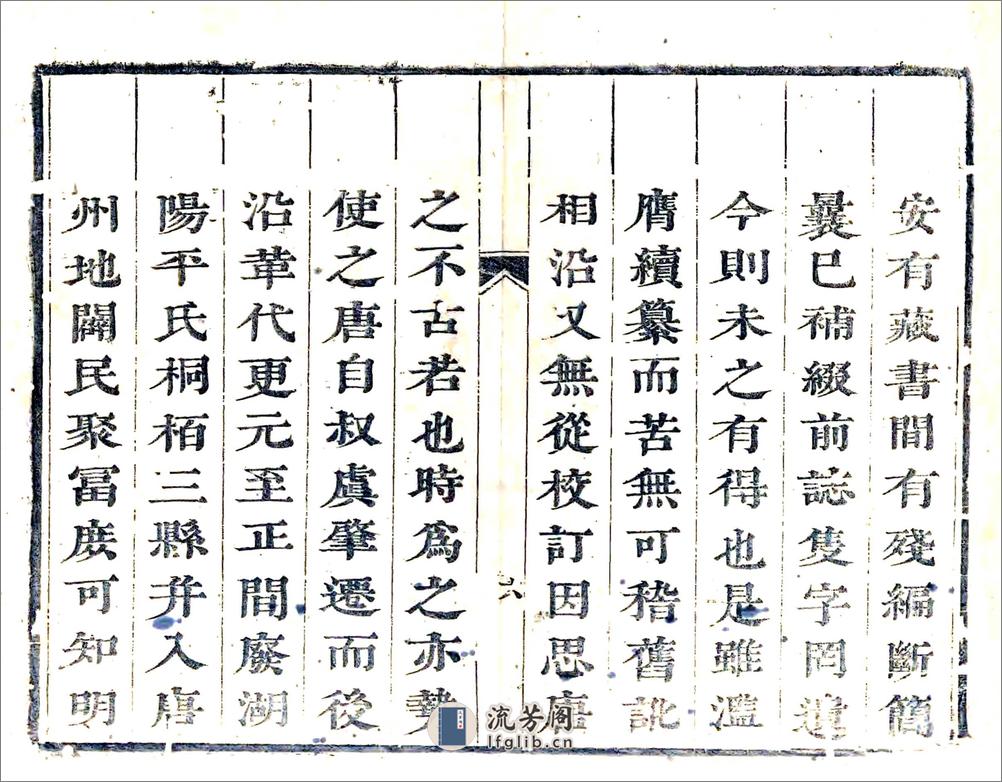 安有藏書間有殘編斷簡
曩已補綴前誌隻字罔遺
今則未之有得也是雖濫
膺續纂而苦無可稽舊訛
相沿又無從校訂因思唐
六
之不古若也時爲之亦勢
使之唐自叔虞肇遷而後
沿革代更元至正間廢湖
陽平氏桐栢三縣并入唐
州地闢民聚冨庶可知明
流芳阁
lfglib.cn